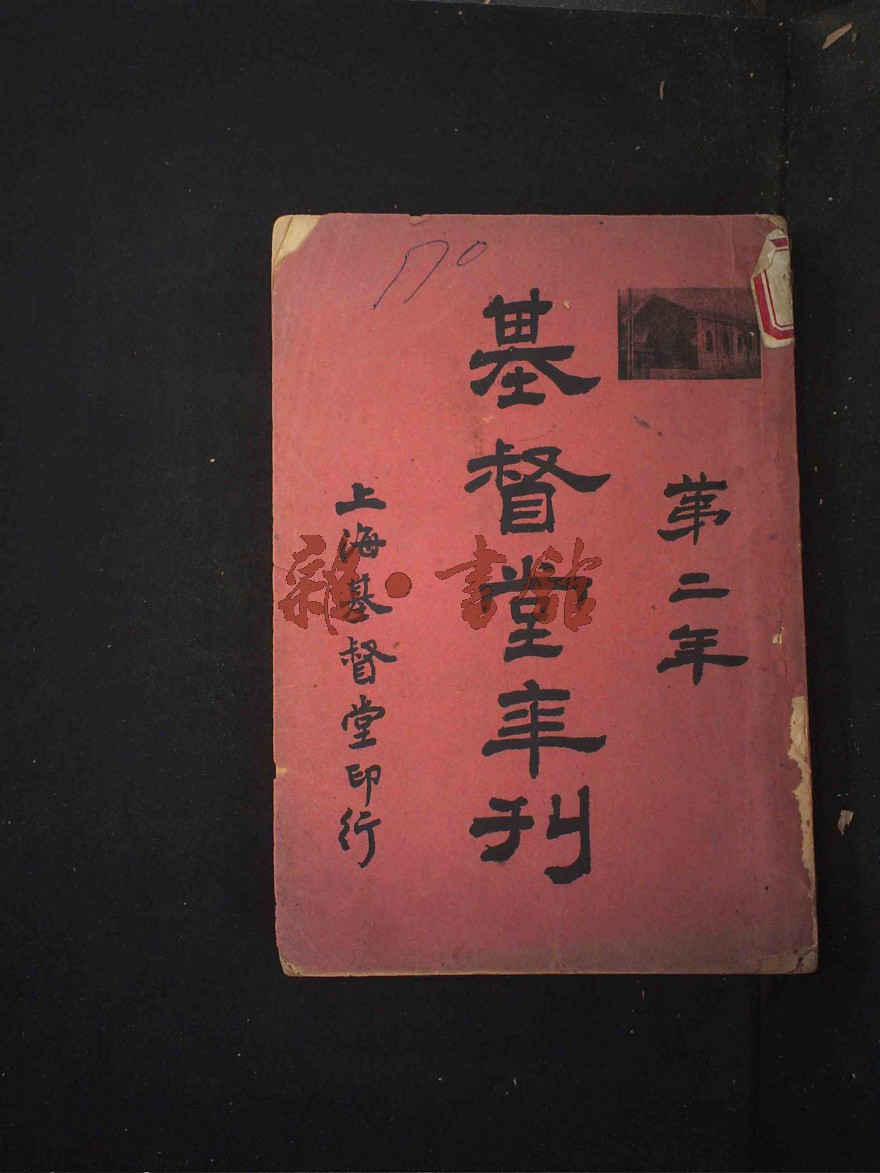 第二年
基督堂年刊
上海基督堂印行
170
雜·書館